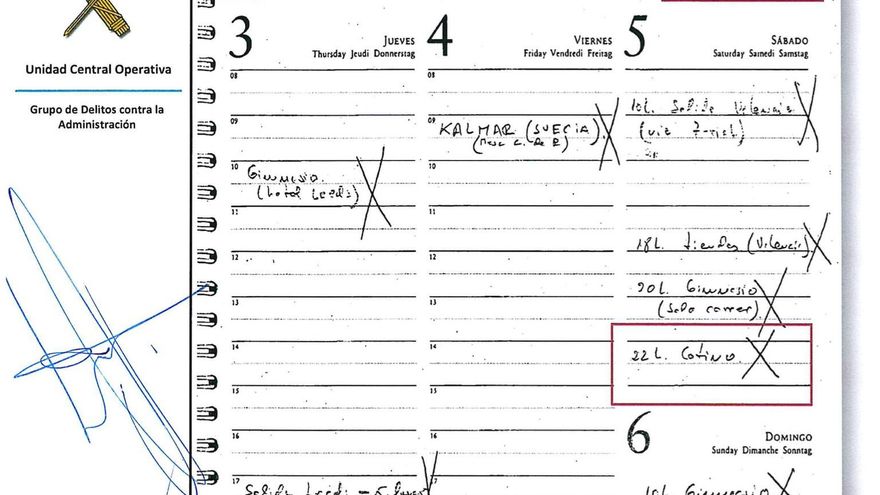 Unidad Central Operativa
Grupo de Delitos contra la
Administración
3
JUEVES
Thursday Jeudi Donnerstag
08
09
10
Gimnasio
(hotel Leeds)
11
12
13
14
15
16
17
Salida Leeds
4
VIERNES
Friday Vendredi Freitag
08
09
KALMAR (SUECIA)
10
11
12
13
14
15
16
17
5
SÁBADO
Saturday Samedi Samstag
10h. Salida Valencia
18h. tiendas (Valencia)
20h. Gimnasio
(solo correr)
22h. Cotino
6
DOMINGO
Sunday Dimanche Sonntag
10h. Gimnasio